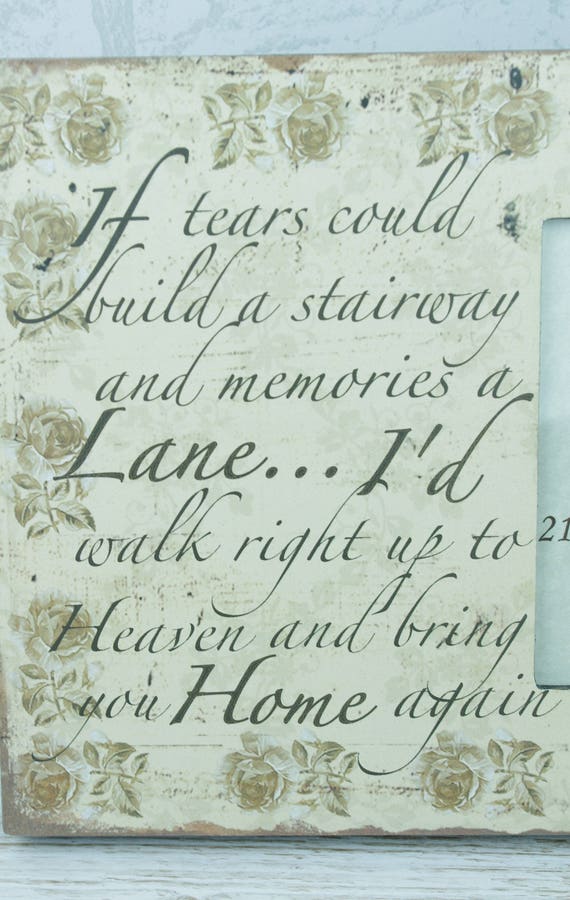 If tears could
build a stairway
and memories a
Lane... I'd
walk right up to
Heaven and bring
you Home again
21